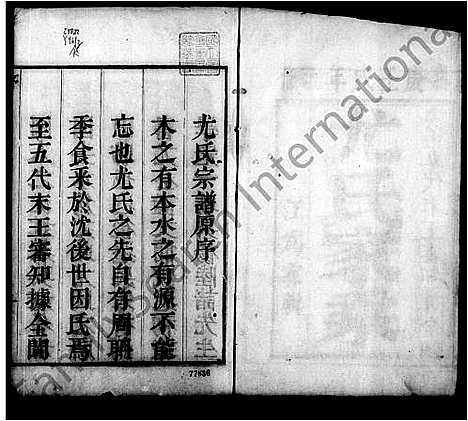 尤氏宗譜原序
木之有本水之有源不能
忘也尤氏之先自有周聃
季食采於沈後世因氏焉
至五代末王審知據全閩
77836
FamilySearch International